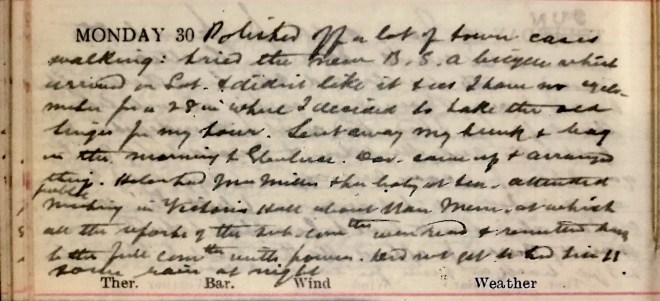 MONDAY 30 Polished off a lot of town cases
walking: tried the new B. S. A bicycle which
arrived on Sat. & didn't like it & as I have no cyclo-
meter for a 28 in wheel I decided to take the old
Singer for my tour. Sent away my trunk & bag
in the morning to Glenluce. Dav. came up & arranged
thing. Mrs Miller & her baby at tea. attended
public
meeting in Victoria Hall about War Mem. at which
all the reports of the sub-comttee were read & remitted
to the full comttee with powers. Did not get to bed till 11
some rain at night
Ther. Bar. Wind Weather